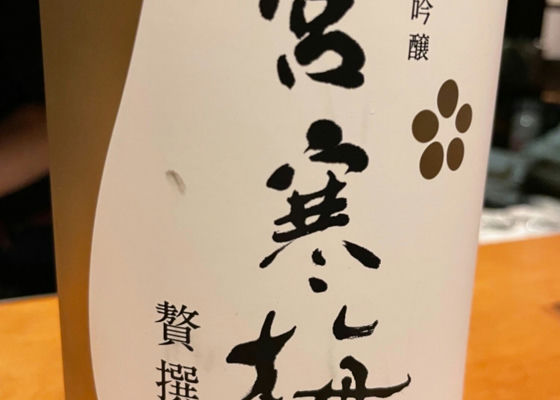 吟醸
宮寒梅
贅撰